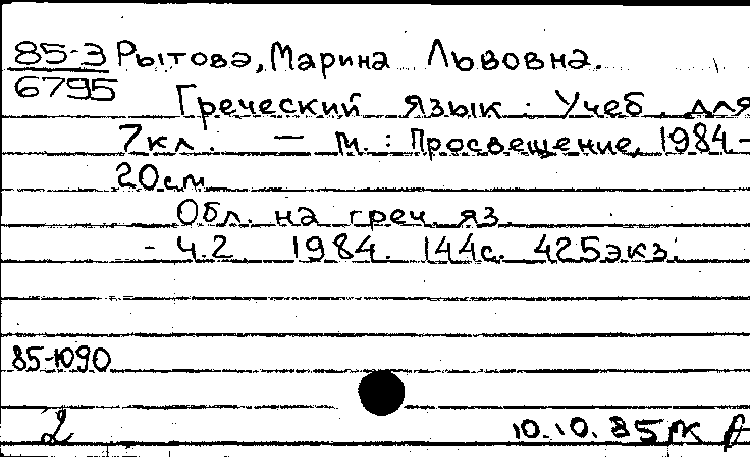 85-3 Рытова, Марина Львовна.
6795
Греческий язык : Учеб. для
7 кл. — М. : Просвещение, 1984.-
20 см
Обл. на греч. яз.
- Ч.2 1984. 144с. 425экз.
85-1090
2
10.10.85